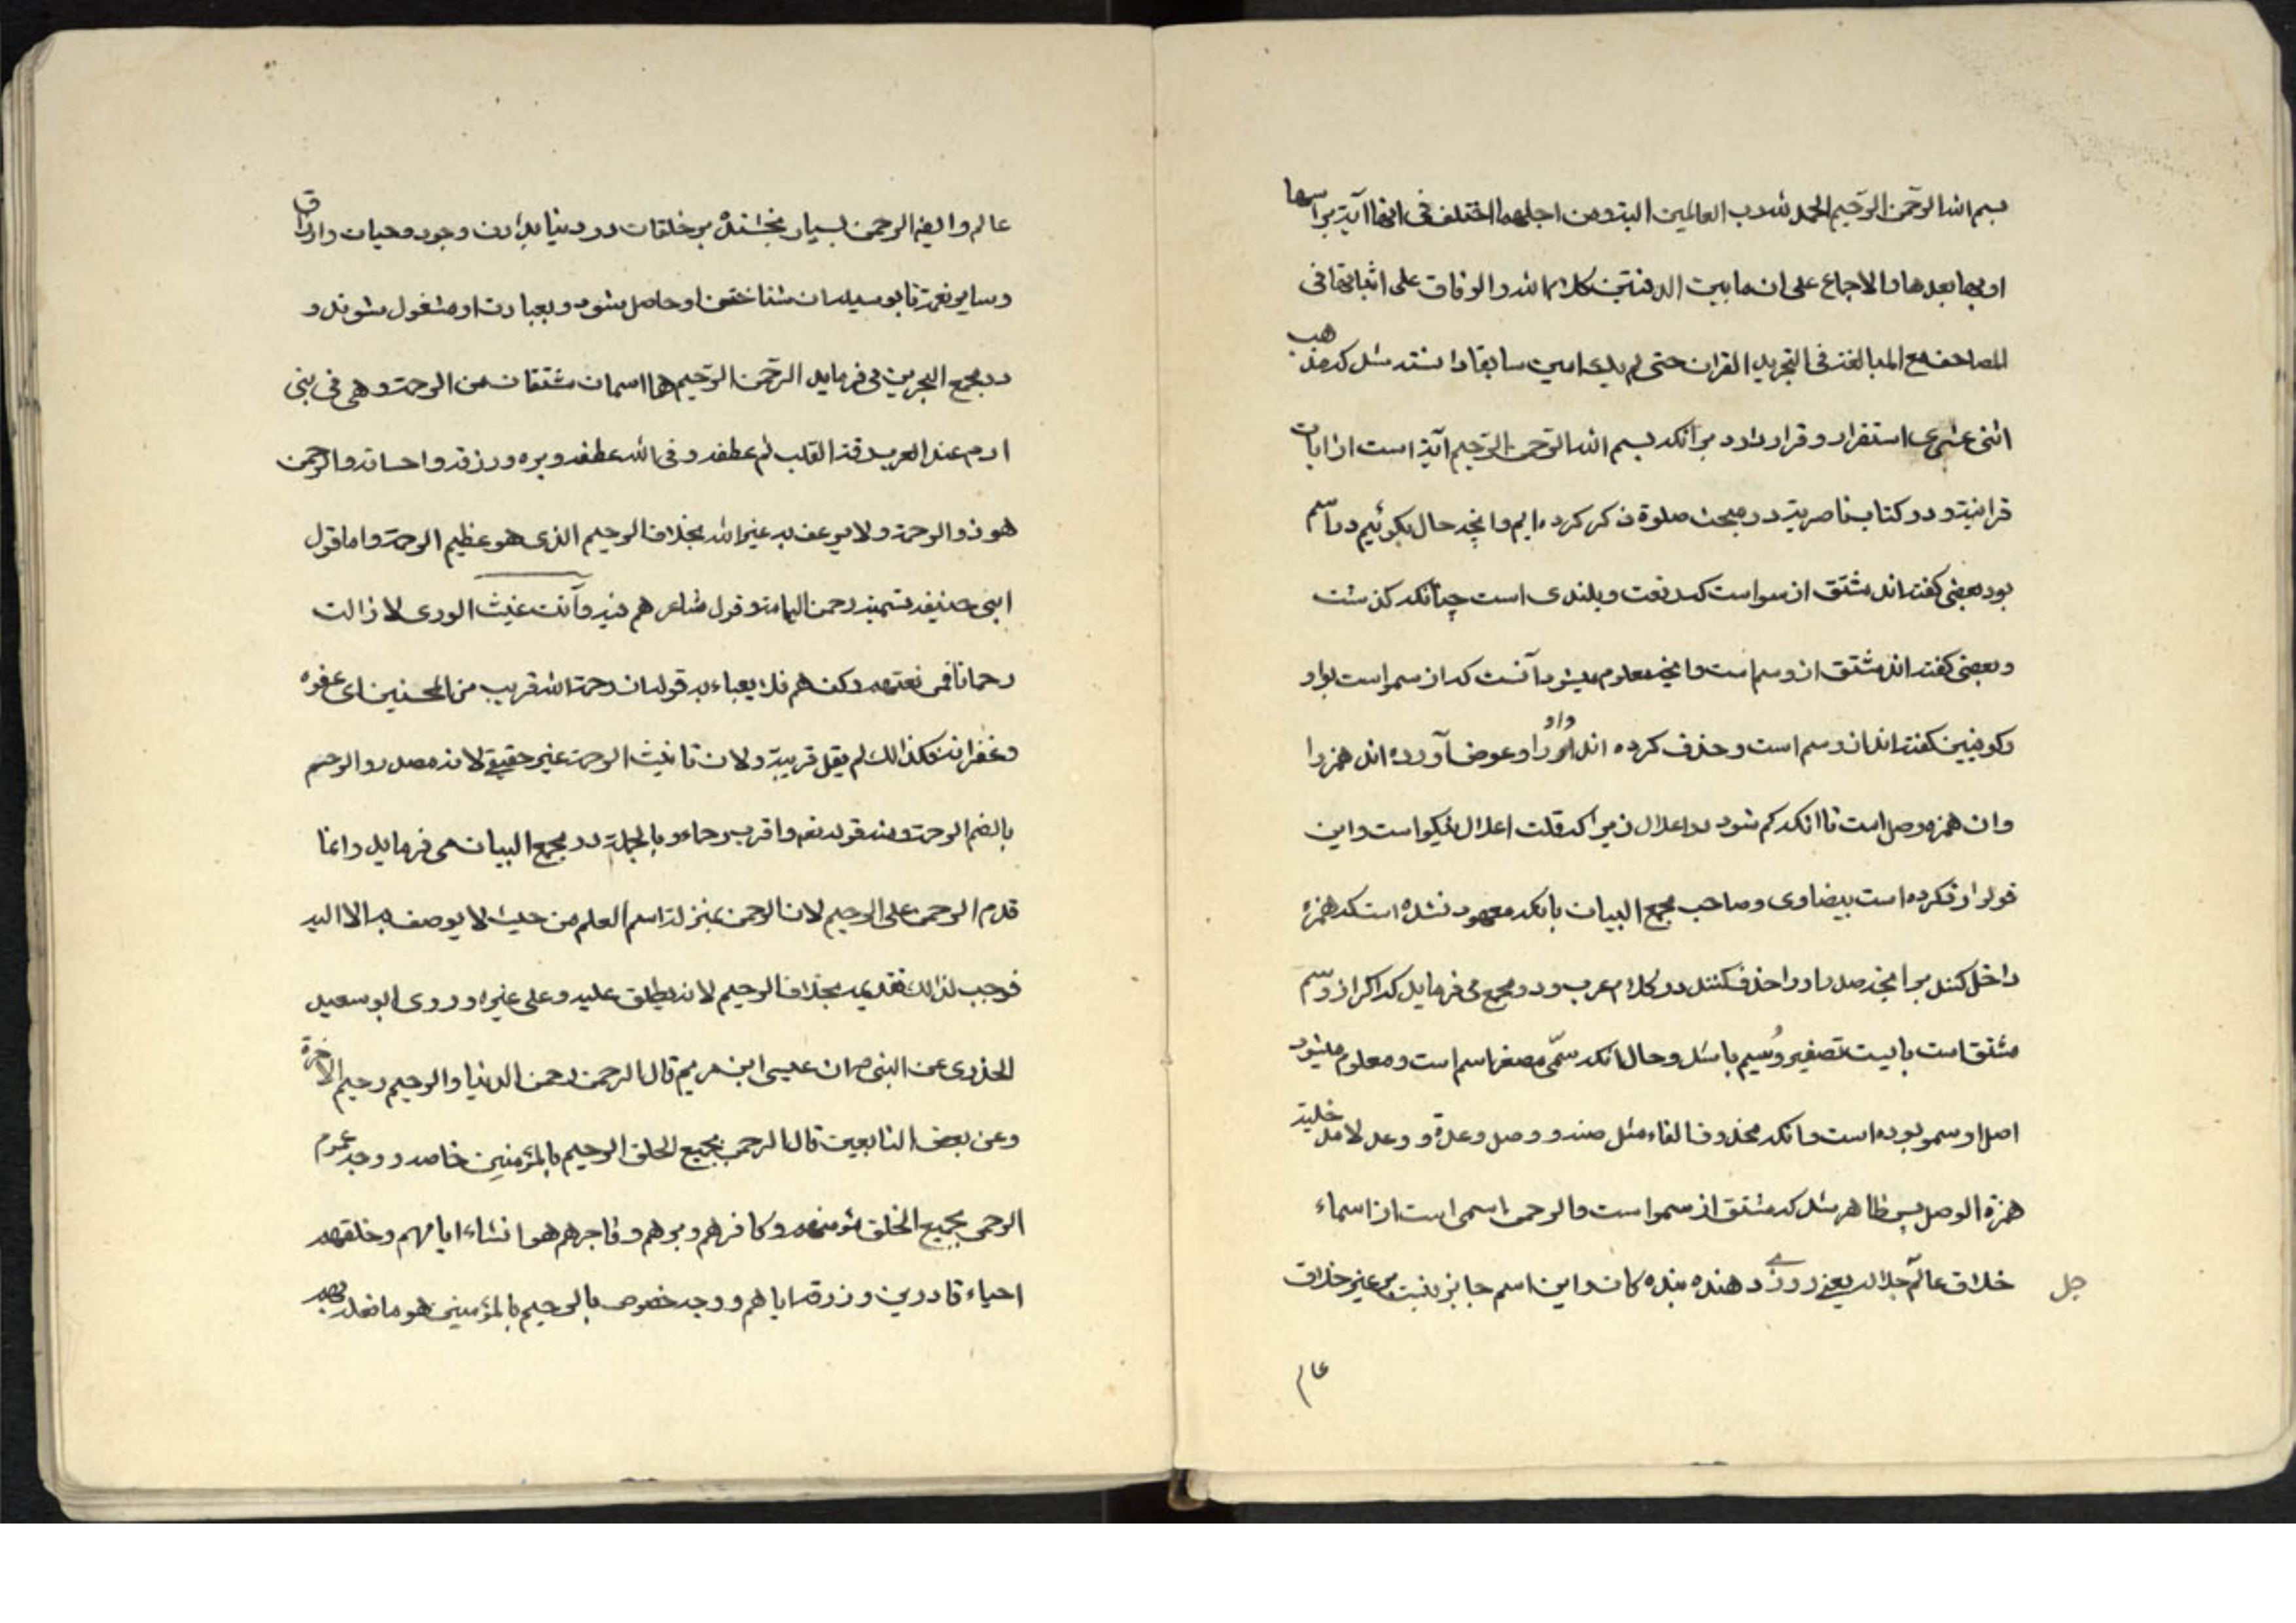 بسم الله الرحمن الرحیم الحمد لله رب العالمین البته و من اجلهما اختلف فی انها آیة براسها
او بما بعدها والاجماع علی ان ما بین الدفتین کلام الله والوفاق علی اثباتها فی
المصاحف مع المبالغة فی التجرید القران حتی لم یکتب امین سابقا دانسته شد که مذهب
اثنی عشری استقرار و قرار دارد بر انکه بسم الله الرحمن الرحیم آیة است از ایات
قرانیة و در کتاب ناصریة در مبحث صلوة ذکر کرده ایم و انچه حال بکوئیم در اسم
بود بعضی کفته اند مشتق از سمو است که رفعت و بلندی است چنانکه کذشت
و بعضی کفته اند مشتق از وسم است و انچه معلوم میشود آنست که از سمو است بواو
وکوفیین کفته اند از وسم است و حذف کرده اند واو را و عوض آورده اند همزه را
وان همزه وصل است تا انکه کم شود اعلال زیرا که قلت اعلال نیکو است و این
قول را رد کرده است بیضاوی و صاحب مجمع البیان بانکه معهود نشده است که همزه
داخل کنند بر انچه صدر او را حذف کنند در کلام عرب و در مجمع می فرماید که اکر از وسم
مشتق است بایست تصغیر وُسیم باشد و حال انکه سمّی مصغر اسم است و معلوم میشود
اصل او سمو بوده است و انکه محذوف الفاء مثل صلة و وصل و عدة و وعد لا تدخلیه
همزة الوصل پس ظاهر شد که مشتق از سمو است و الرحمن اسمی است از اسماء
خلاق عالم جل جلاله یعنی روزی دهنده بنده کان و این اسم جایز نیست بر غیر خلاق
جل
عالم
عالم و ایضا الرحمن بسیار بخشنده بر خلقات در دنیا بدادن وجود و حیات و ارزاق
و سایر نعمة تا بوسیله ان شناختن او حاصل شود و بعبادت او مشغول شوند و
در مجمع البحرین می فرماید الرحمن الرحیم هما اسمان مشتقان من الرحمة و هی فی بنی
ادم عند العرب رقة القلب ثم عطفه و فی الله عطفه و بره و رزقه و احسانه و الرحمن
هو ذو الرحمة ولا یوصف به غیر الله بخلاف الرحیم الذی هو عظیم الرحمة و اما قول
ابنی حنیفه تسمیة رحمن الیمامة و قول شاعر هم فیه وأنت غیث الوری لا زالت
رحمانا فمن تعنتهم و کفرهم فلا یعباء به قوله ان رحمة الله قریب من المحسنین ای عفوه
و غفرانه فکذالک لم یقل قریبة ولان تانیث الرحمة غیر حقیقی لانه مصدر و الرحم
بالضم الرحمة و منه قوله تعم و اقرب رحما و بالجملة در مجمع البیان می فرماید و انما
قدم الرحمن علی الرحیم لان الرحمن بمنزلة اسم العلم من حیث لا یوصف به الا الله
فوجب لذالک تقدیمه بخلاف الرحیم لانه یطلق علیه و علی غیره و روی ابو سعید
الخدری عن النبی ص ان عیسی ابن مریم قال الرحمن رحمن الدنیا و الرحیم رحیم الاخرة
وعن بعض التابعین قال الرحمن بجمیع الخلق الرحیم بالمؤمنین خاصه و وجه عموم
الرحمن بجمیع الخلق مؤمنهم و کافرهم و برهم و فاجرهم هو انشاء ایاهم و خلقهم
احیاء قادرین و رزقه ایاهم و وجه خصوص بالرحیم بالمؤمنین هو ما فعله بهم